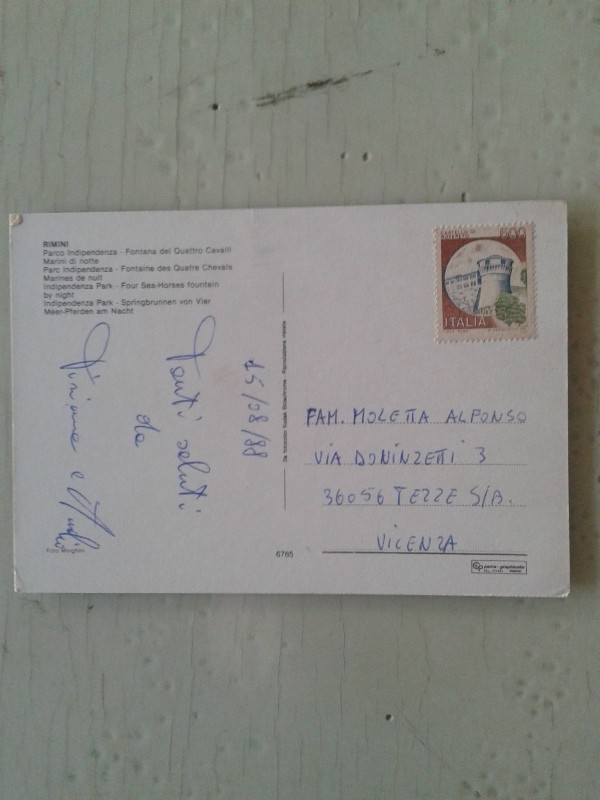 RIMINI
Parco Indipendenza - Fontana dei Quattro Cavalli
Marini di notte
Parc Indipendenza - Fontaine des Quatre Chevals
Marines de nuit
Indipendenza Park - Four Sea-Horses fountain
by night
Indipendenza Park - Springbrunnen von Vier
Meer-Pferden am Nacht
15/08/88
Tanti saluti
da
Tiziana e
Foto Minghini
6765
500
ITALIA
FAM. MOLETTA ALFONSO
VIA DONINZETTI 3
36056 TEZZE S/B.
VICENZA